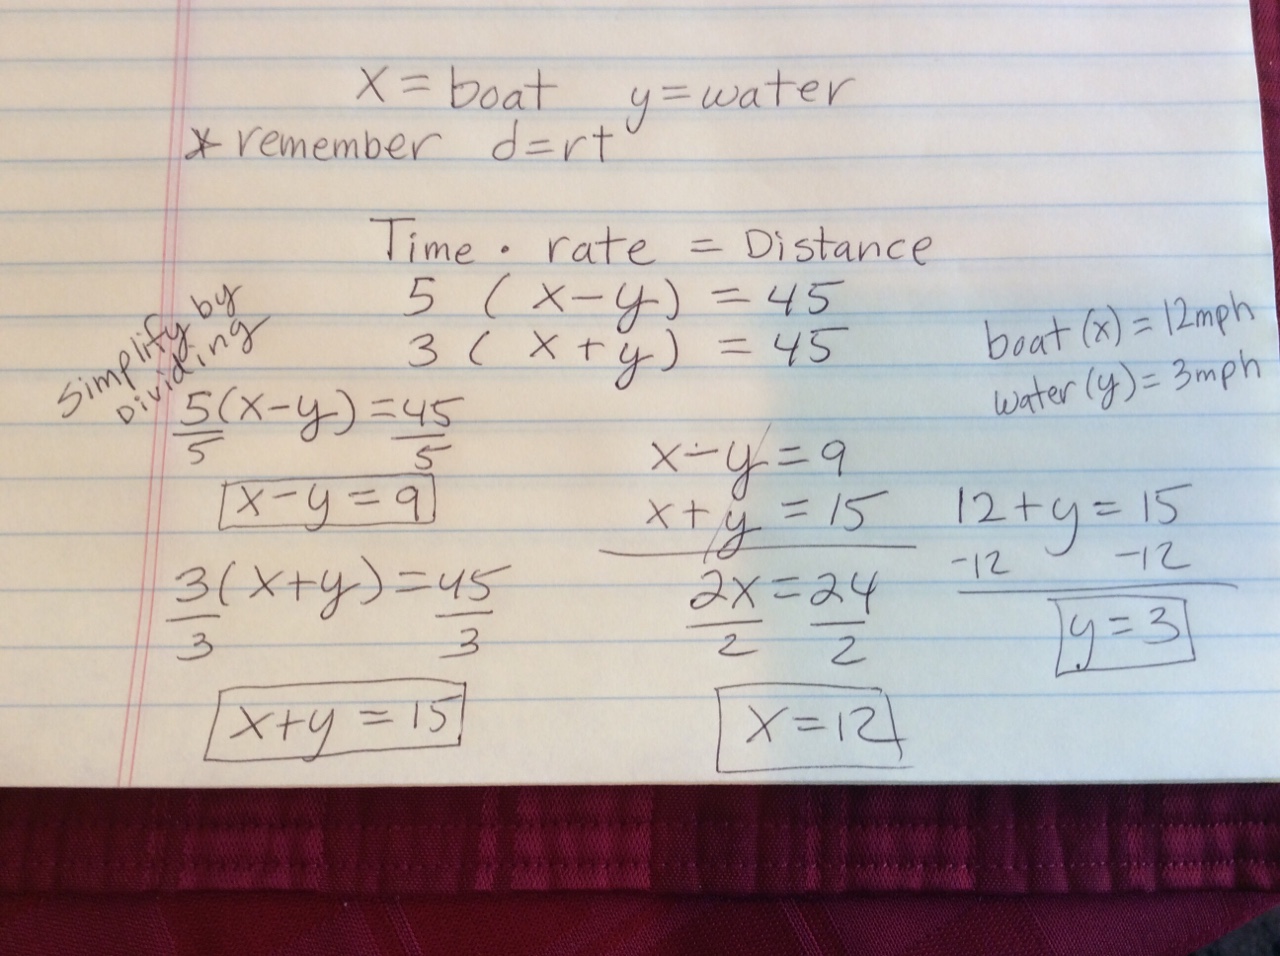 x = boat y = water
* remember d = rt
Time · rate = Distance
5 ( x - y ) = 45
3 ( x + y ) = 45
Simplify by
Dividing
5(x - y) = 45
5 5
x - y = 9
3(x + y) = 45
3 3
x + y = 15
x - y = 9
x + y = 15
2x = 24
2 2
x = 12
boat (x) = 12mph
water (y) = 3mph
12 + y = 15
-12 -12
y = 3